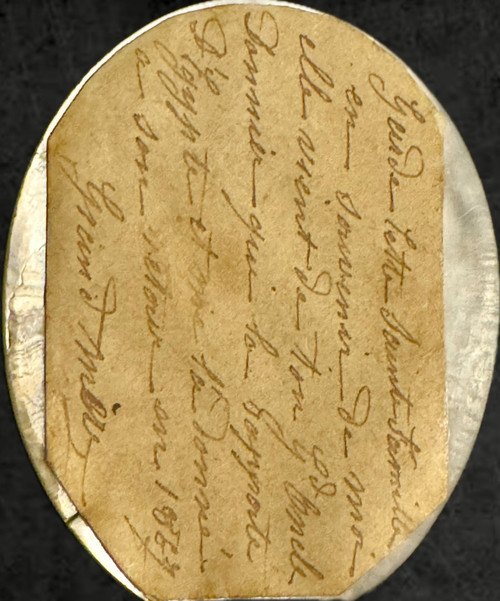 Garde cette Sainte famille
en souvenir de moi
elle vient de ton Gd Oncle
Dominique la
D'Egypte et me la donné
a son retour en 18
Grand Mère